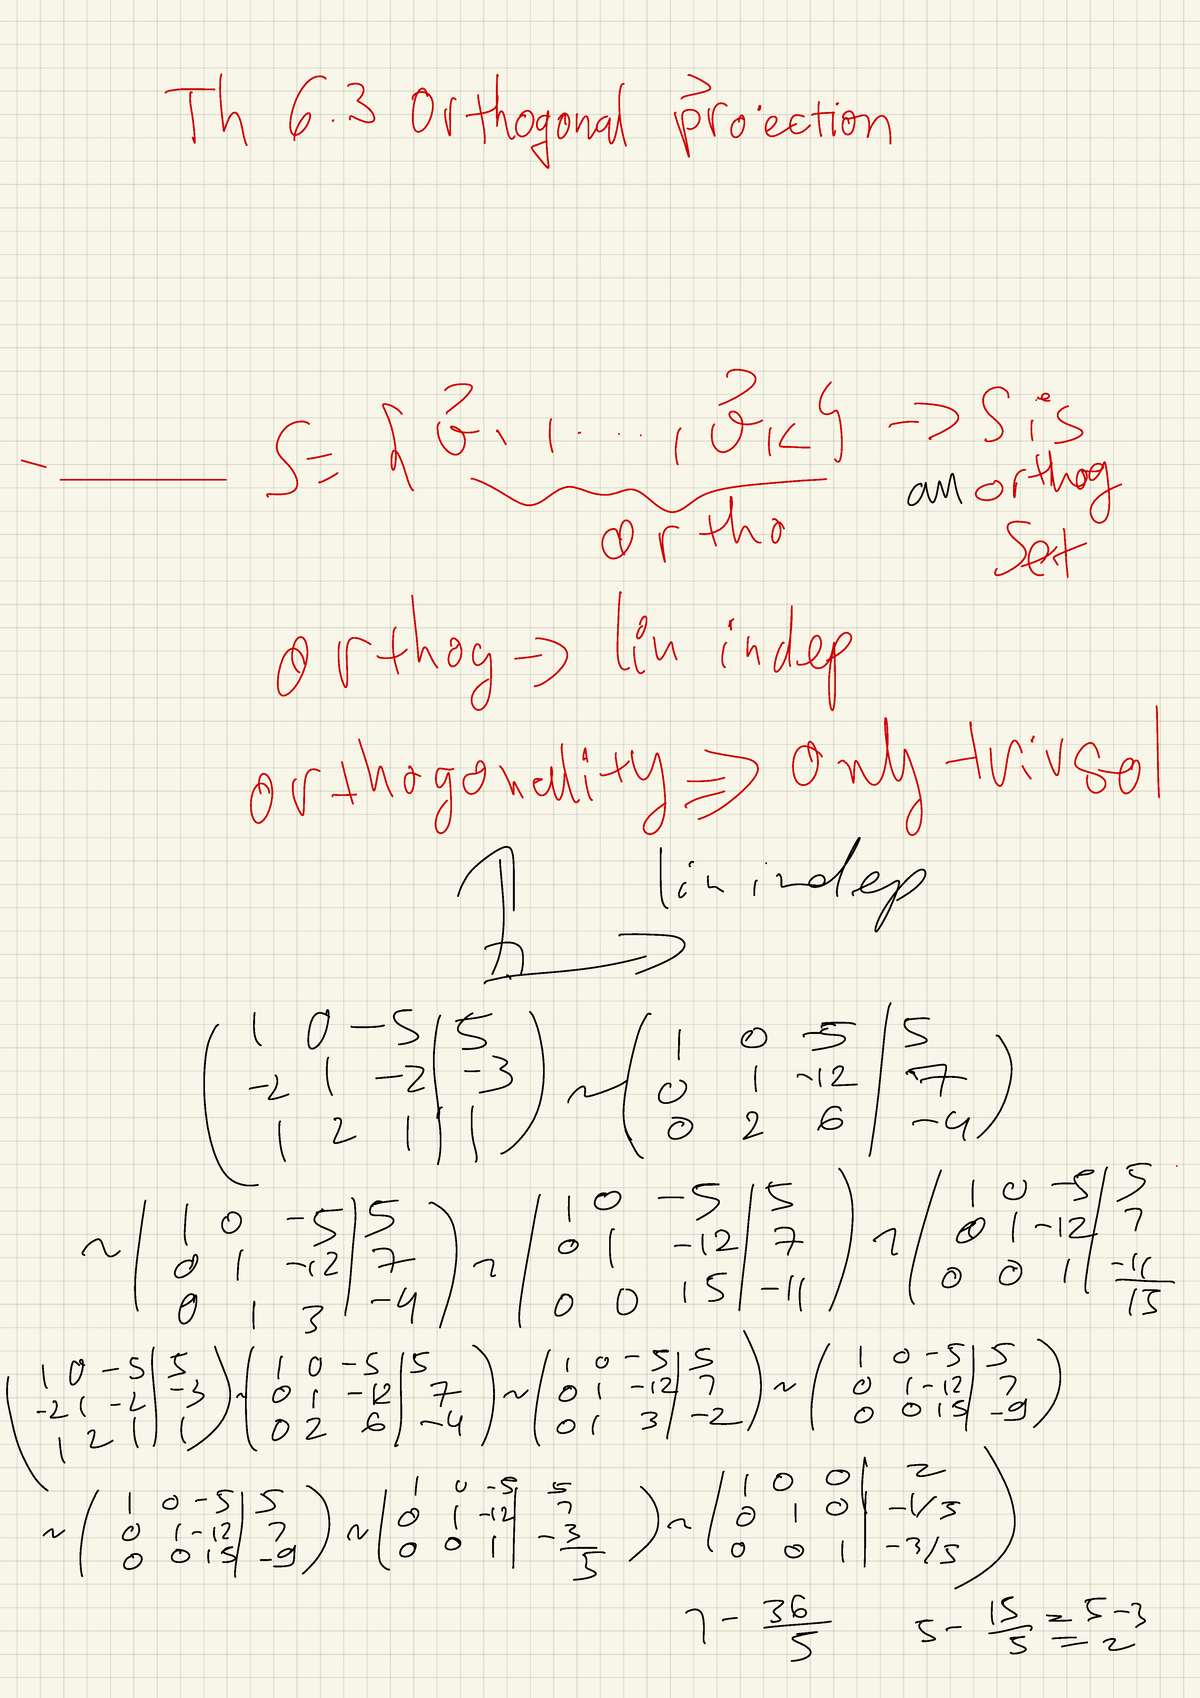 Th 6.3 Orthogonal projection
S = { v⃗1, ..., v⃗k } -> S is
an orthog
ortho
Set
orthog -> lin indep
orthogonality => only triv sol
lin indep
( 1 0 -5 | 5 ; -2 1 -2 | -3 ; 1 2 1 | 1 ) ~ ( 1 0 -5 | 5 ; 0 1 -12 | 7 ; 0 2 6 | -4 )
~ ( 1 0 -5 | 5 ; 0 1 -12 | 7 ; 0 1 3 | -4 ) ~ ( 1 0 -5 | 5 ; 0 1 -12 | 7 ; 0 0 15 | -11 ) ~ ( 1 0 -5 | 5 ; 0 1 -12 | 7 ; 0 0 1 | -11/15 )
( 1 0 -5 | 5 ; -2 1 -2 | -3 ; 1 2 1 | 1 ) ~ ( 1 0 -5 | 5 ; 0 1 -12 | 7 ; 0 2 6 | -4 ) ~ ( 1 0 -5 | 5 ; 0 1 -12 | 7 ; 0 1 3 | -2 ) ~ ( 1 0 -5 | 5 ; 0 1 -12 | 7 ; 0 0 15 | -9 )
~ ( 1 0 -5 | 5 ; 0 1 -12 | 7 ; 0 0 15 | -9 ) ~ ( 1 0 -5 | 5 ; 0 1 -12 | 7 ; 0 0 1 | -3/5 ) ~ ( 1 0 0 | 2 ; 0 1 0 | -1/5 ; 0 0 1 | -3/5 )
7 - 36/5 5 - 15/5 = 5-3
= 2